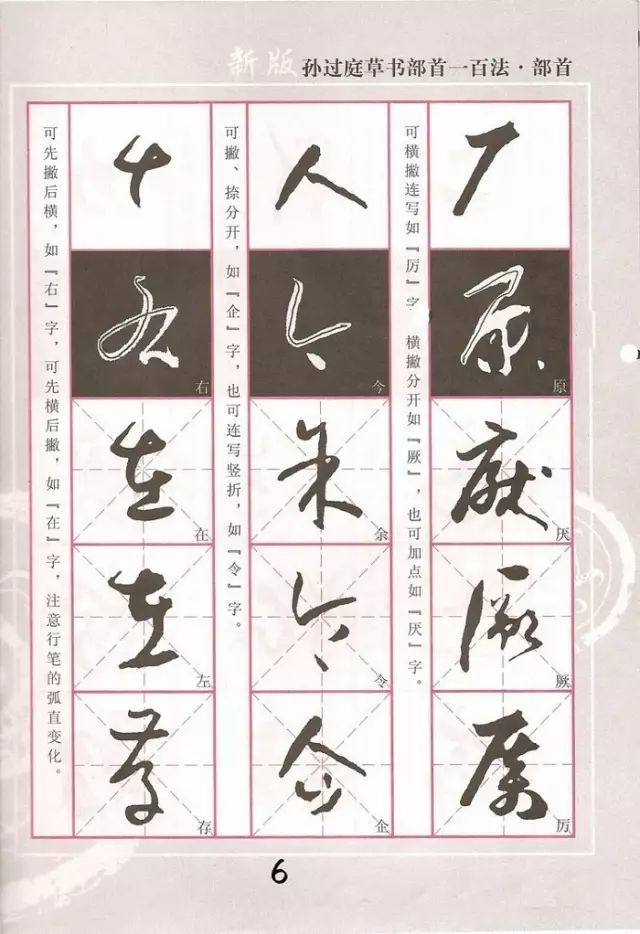 新版 孙过庭草书部首一百法·部首
厂
原 原
厌 厌
厥 厥
厉 厉
可横撇连写如『厉』字 横撇分开如『厥』，也可加点如『厌』字。
人
今 今
余 余
令 令
企 企
可撇、捺分开，如『企』字，也可连写竖折，如『令』字。
𠂇
右 右
在 在
左 左
存 存
可先撇后横，如『右』字，可先横后撇，如『在』字，注意行笔的弧直变化。
6